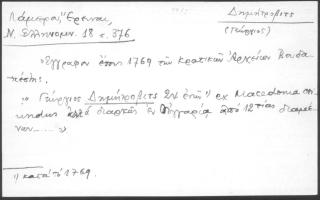 Λάμπρου, Ἔρευναι,
Ν. Ἑλληνομν. 18 σ. 376
Δημητρόβιτς
(Γεώργιος)
Ἔγγραφον ἔτους 1769 τῶν Κρατικῶν Ἀρχείων Βουδα
πέστης.
"Γεώργιος Δημητρόβιτς 24 ἐτῶν¹⁾ ex Macedonia
ἀλλὰ διαρκῶς ἐν Οὐγγαρίᾳ ἀπὸ 12τίας διαμέ
νων......»
1) κατὰ τὸ 1769.